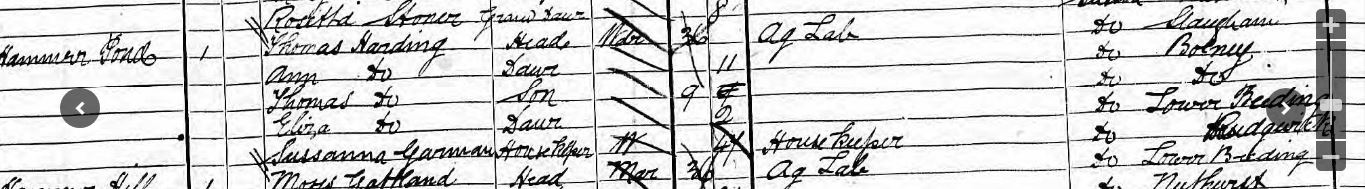 Rosetta Stoner Grand Daur 8 do Slaugham
Hammer Pond 1 Thomas Harding Head Wdr 36 Ag Lab do Bolney
Ann do Daur 11 do do
Thomas do Son 9 do Lower Beeding
Eliza do Daur 2 do Rudgwick
Sussanna Garman Housekeeper W 47 House Keeper do Lower Beeding
Moses Gatland Head Mar 36 Ag Lab do Nuthurst
Hill 1